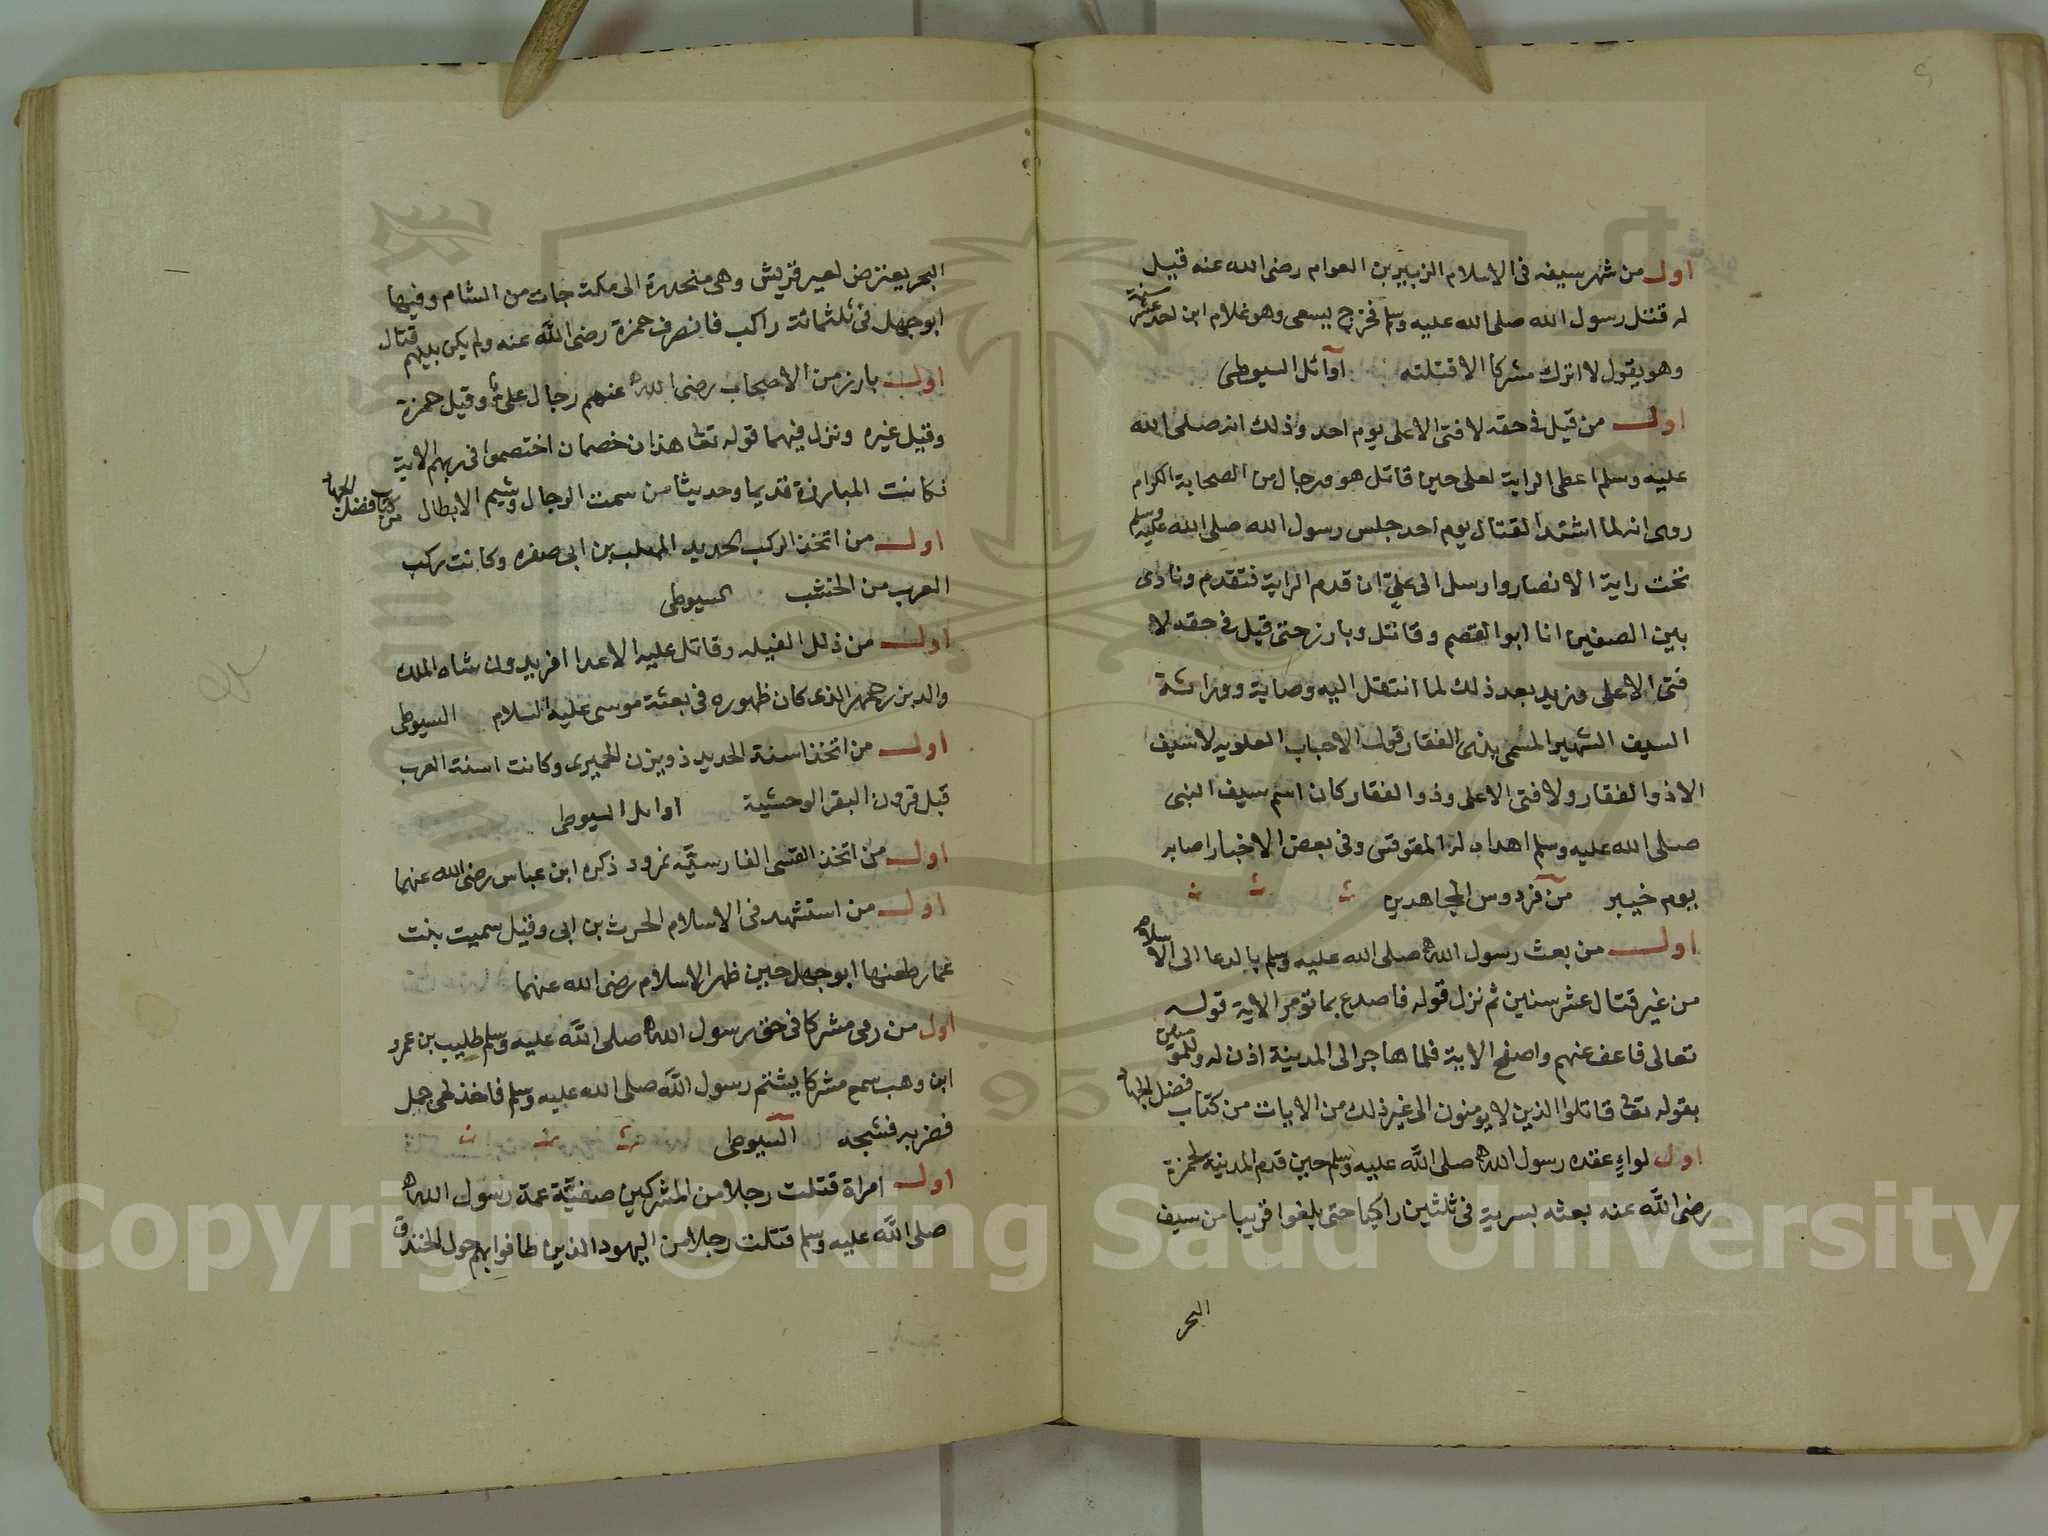 اول من شهر سيفه فى الاسلام الزبير بن العوام رضى الله عنه قيل
له قتل رسول الله صلى الله عليه وسلم فخرج يسعى وهو غلام ابن احد عشر سنة
وهو يقول لا اترك مشركا الا قتلته اوآئل السيوطى
اول من قيل فى حقه لا فتى الا على يوم احد وذلك انه صلى الله
عليه وسلم اعطى الراية لعلى حين قاتل هو ورجال من الصحابة الكرام
روى انه لما اشتد القتال يوم احد جلس رسول الله صلى الله عليه وسلم
تحت راية الانصار وارسل الى علىّ ان قدم الراية فتقدم ونادى
بين الصفين انا ابو القصم وقاتل وبارز حتى قيل فى حقه لا
فتى الا على وزيد بعد ذلك لما انتقل اليه وصاية ووراثة
السيف الشهير المسمى بذى الفقار قول الاحباب العلويه لا سيف
الا ذو الفقار ولا فتى الا على وذو الفقار كان اسم سيف النبى
صلى الله عليه وسلم اهداه له المقوقس وفى بعض الاخبار اصابه
يوم خيبر من فردوس المجاهدين
اول من بعث رسول الله صلى الله عليه وسلم بالدعا الى الاسلام
من غير قتال عشر سنين ثم نزل قوله فاصدع بما تؤمر الاية قوله
تعالى فاعف عنهم واصفح الاية فلما هاجر الى المدينة اذن له وللمؤمنين
بقوله تعا قاتلوا الذين لا يومنون الى غير ذلك من الايات من كتاب فضل الجهاد
اول لواءٍ عقده رسول الله صلى الله عليه وسلم حين قدم المدينة لحمزة
رضى الله عنه بعثه بسرية فى ثلثين راكبا حتى بلغوا قريبا من سيف
البحر
البحر يعترض لعير قريش وهى منحدرة الى مكة جات من الشام وفيها
ابو جهل فى ثلثمائة راكب فانصرف حمزة رضى الله عنه ولم يكن بينهم قتال
اول بارز من الاصحاب رضى الله عنهم رجال على وقيل حمزة
وقيل غيره ونزل فيهما قوله تعا هذان خصمان اختصموا فى ربهم الاية
فكانت المبارزة قديما وحديثا من سمت الرجال وشيم الابطال من كتاب فضل الجهاد
اول من اتخذ الركب الحديد المهلب بن ابى صفره وكانت ركب
العرب من الخشب السيوطى
اول من ذلل الفيله وقاتل عليه الاعدا افريدون شاه الملك
والد بن رهمهر الذى كان ظهوره فى بعثة موسى عليه السلام السيوطى
اول من اتخذ اسنة الحديد ذو يزن الحميرى وكانت اسنة العرب
قبل قرون البقر الوحشية اوائل السيوطى
اول من اتخذ القسى الفارسيّه نمرود ذكره ابن عباس رضى الله عنهما
اول من استشهد فى الاسلام الحرث بن ابى وقيل سميت بنت
عمار طعنها ابو جهل حين ظهر الاسلام رضى الله عنهما
اول من رمى مشركا فى حق رسول الله صلى الله عليه وسلم طليب بن عمرو
ابن وهب سمع مشركا يشتم رسول الله صلى الله عليه وسلم فاخذ لحى جمل
فضربه فشجه السيوطى
اول امراة قتلت رجلا من المشركين صفيّة عمة رسول الله
صلى الله عليه وسلم قتلت رجلا من اليهود الذين طافوا بهم حول الخندق
Copyright © King Saud University